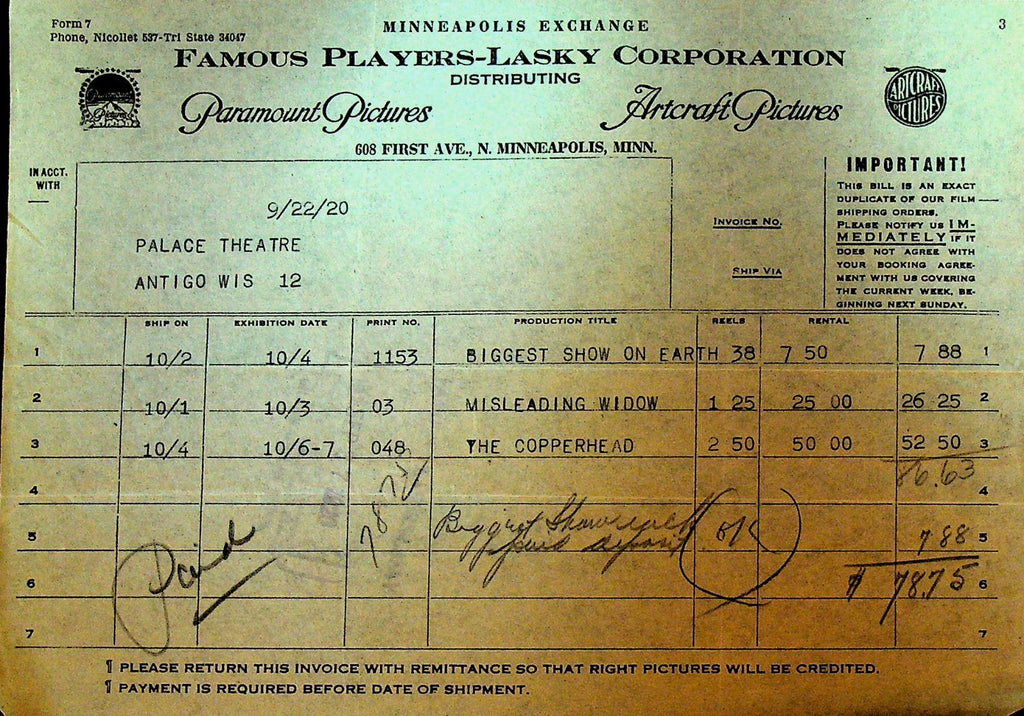 Form 7
MINNEAPOLIS EXCHANGE
3
Phone, Nicollet 537-Tri State 34047
FAMOUS PLAYERS-LASKY CORPORATION
DISTRIBUTING
Paramount Pictures
Artcraft Pictures
ARTCRAFT PICTURES
608 FIRST AVE., N. MINNEAPOLIS, MINN.
IN ACCT. WITH
9/22/20
PALACE THEATRE
ANTIGO WIS 12
INVOICE NO.
SHIP VIA
IMPORTANT!
THIS BILL IS AN EXACT
DUPLICATE OF OUR FILM
SHIPPING ORDERS.
PLEASE NOTIFY US IM-
MEDIATELY IF IT
DOES NOT AGREE WITH
YOUR BOOKING AGREE-
MENT WITH US COVERING
THE CURRENT WEEK, BE-
GINNING NEXT SUNDAY.
SHIP ON EXHIBITION DATE PRINT NO. PRODUCTION TITLE REELS RENTAL
1 10/2 10/4 1153 BIGGEST SHOW ON EARTH 38 7 50 7 88 1
2 10/1 10/3 03 MISLEADING WIDOW 1 25 25 00 26 25 2
3 10/4 10/6-7 048 THE COPPERHEAD 2 50 50 00 52 50 3
86.63
4 4
7875
5 Biggest Show 7 88 5
paid deposit OK
Paid
6 $ 78.75 6
7 7
¶ PLEASE RETURN THIS INVOICE WITH REMITTANCE SO THAT RIGHT PICTURES WILL BE CREDITED.
¶ PAYMENT IS REQUIRED BEFORE DATE OF SHIPMENT.